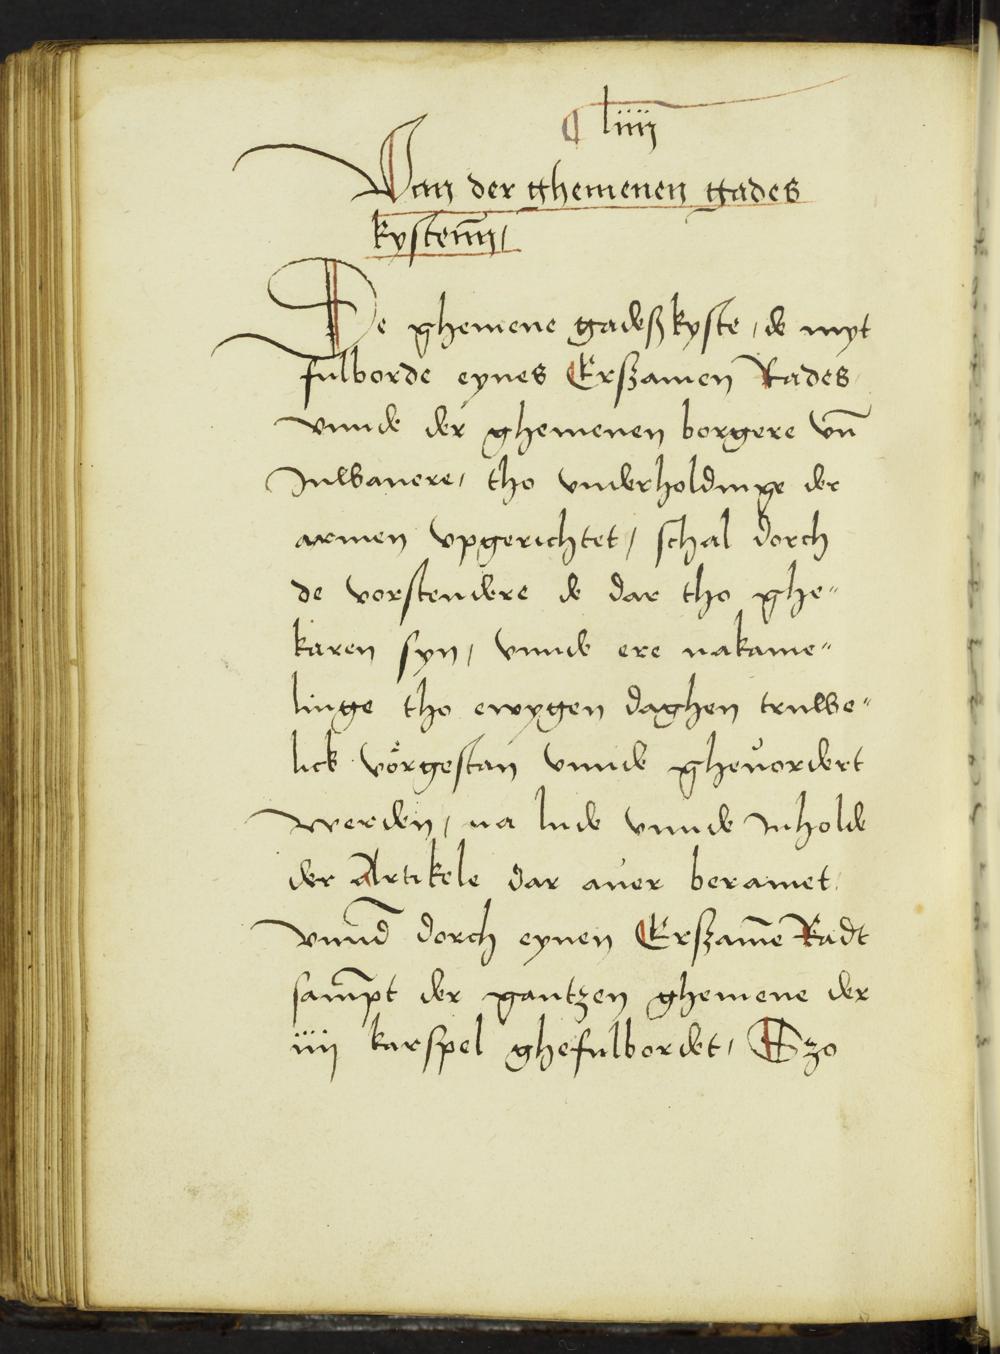 ¶ liiij
Van der ghemenen gades
kystenn̄,
De ghemene gadeßkyste, de myt
fulborde eynes Erßamen Rades
vnnde der ghemenen borgere vn̄
Inwanere, tho vnderholdinge der
armen vpgerichtet, schal dorch
de vorstendere de dar tho ghe"
karen syn, vnnde ere nakame"
linge tho ewygen daghen truwe"
lick vörgestan vnnde gheuordert
werden, na lude vnnde Inholde
der Artikele dar auer beramet,
vnnd̄ dorch eynen Erßame̅ Radt
sam̅pt der gantzen ghemene der
iiij karspel ghefulbordet, Szo